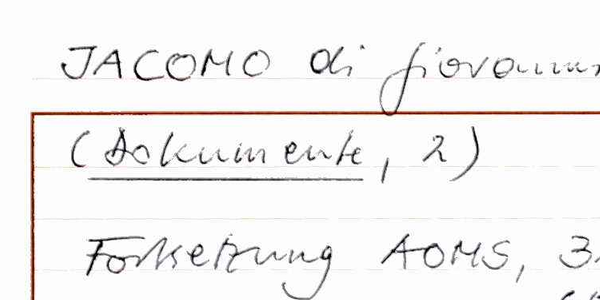 JACOMO di giovanni
(Dokumente, 2)
Fortsetzung AOMS, 3